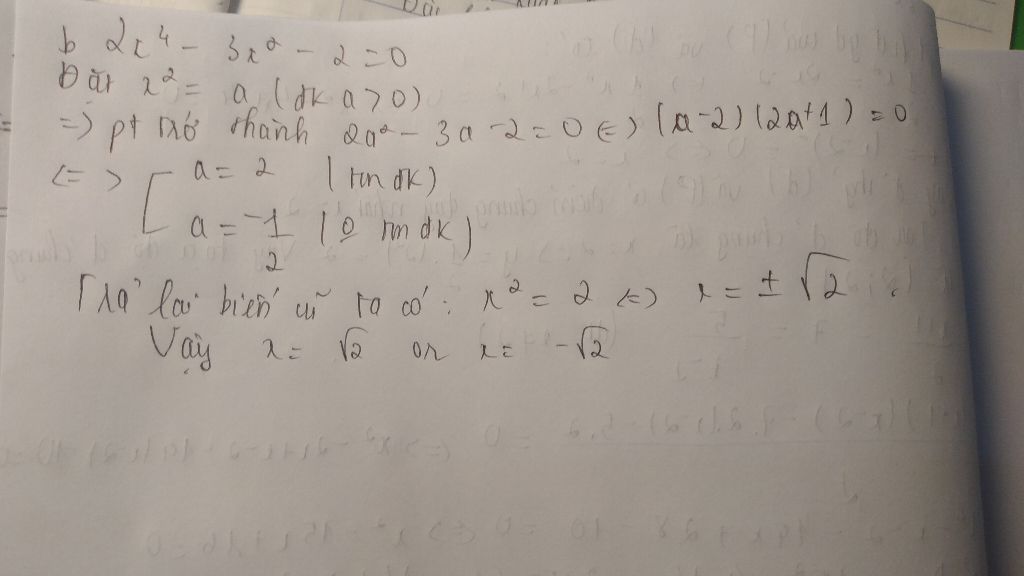 b 2x⁴ - 3x² - 2 = 0
Đặt x² = a (đk a > 0)
=> pt trở thành 2a² - 3a - 2 = 0 <=> (a-2)(2a+1) = 0
<=> [ a = 2 (tm đk)
a = -1/2 (o tm đk)
Trả lại biến cũ ta có: x² = 2 <=> x = ± √2.
Vậy x = √2 or x = -√2